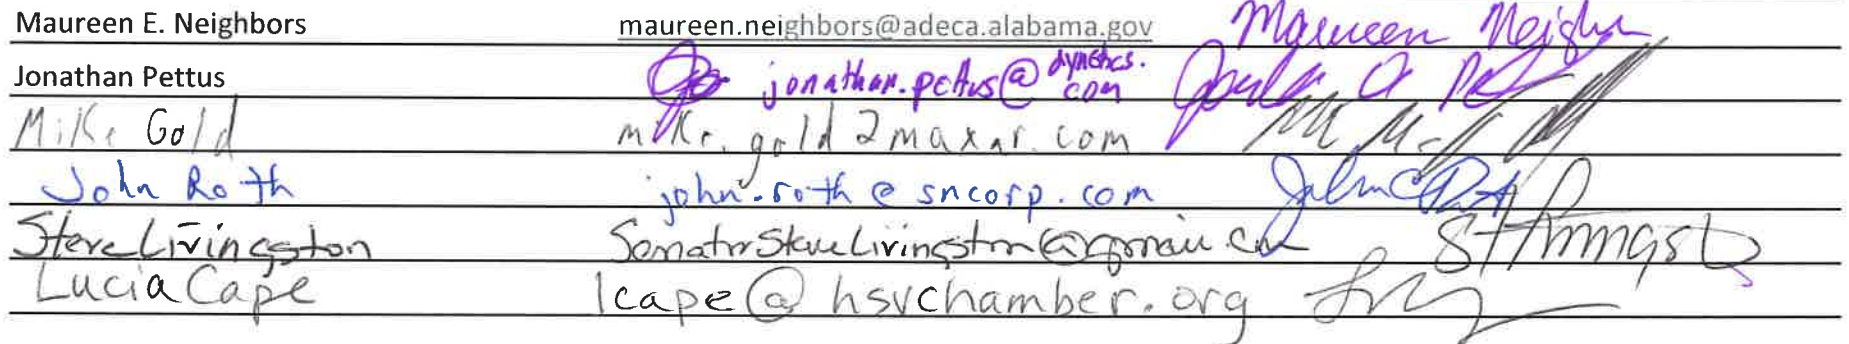 Maureen E. Neighbors maureen.neighbors@adeca.alabama.gov Maureen Neighbors
Jonathan Pettus jonathan.pettus@dynetics.com
Mike Gold mike.gold2maxar.com
John Roth john.roth@sncorp.com
Steve Livingston SenatorSteveLivingston@gmail.com
Lucia Cape lcape@hsvchamber.org